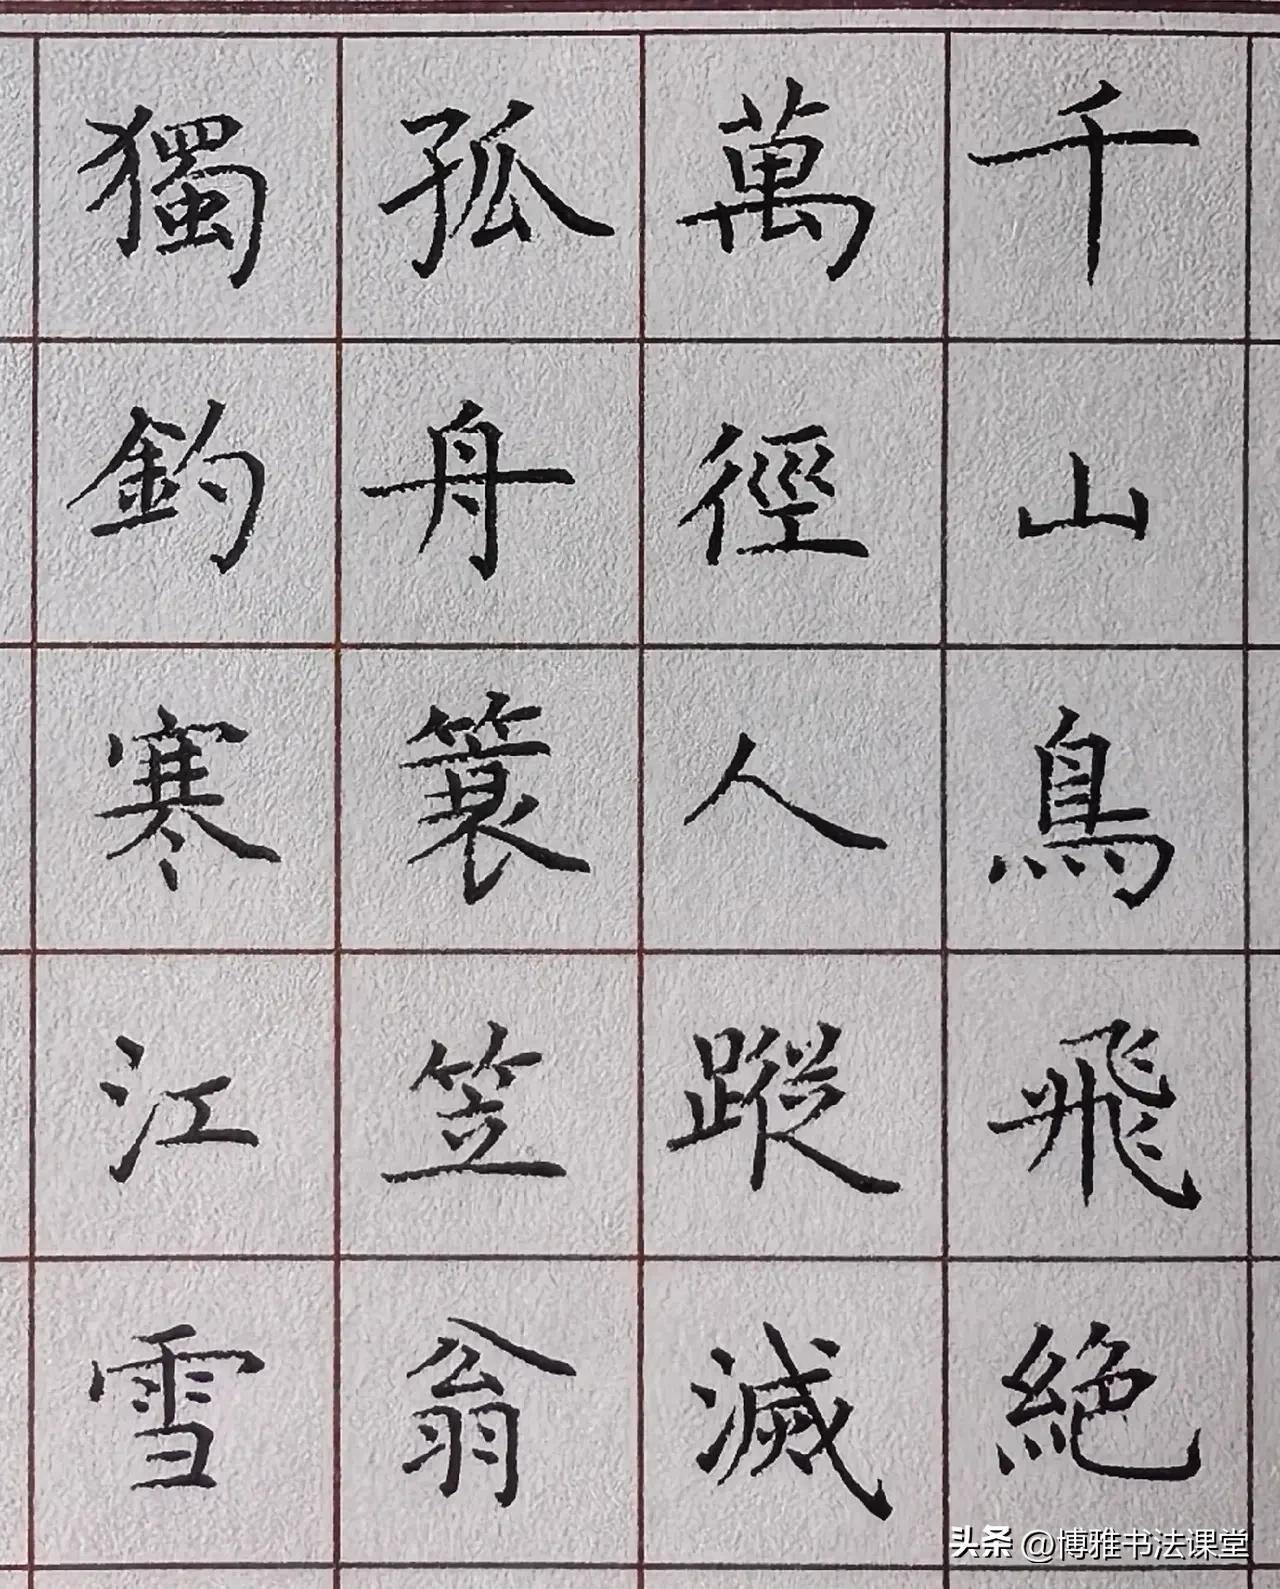 千山鳥飛絶
萬徑人蹤滅
孤舟簑笠翁
獨釣寒江雪
头条 @博雅书法课堂